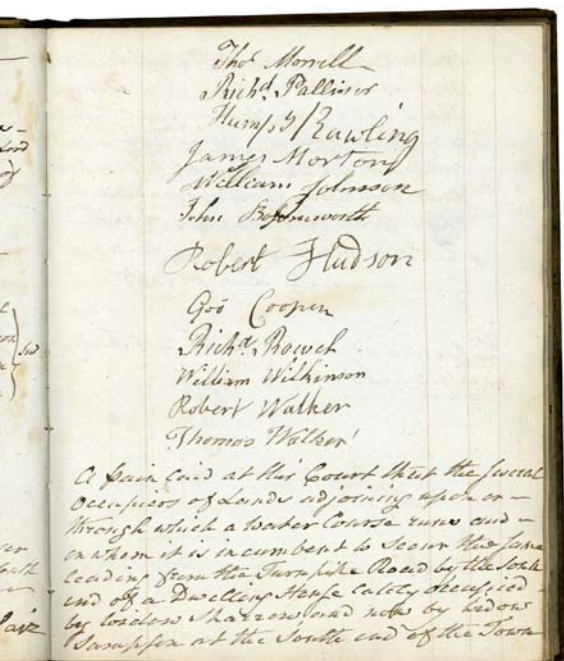 Thos Morrell
Richd. Palliser
Humpy Rawling
James Morton
William Johnson
John
Robert Hudson
Geo Cooper
Richd. Rowel
William Wilkinson
Robert Walker
Thomas Walker
A Pain laid at this Court that the several
Occupiers of Lands adjoining upon or
through which a Water Course runs and
on whom it is incumbent to Scour the same
leading from the Turnpike Road by the South
end of a Dwelling House lately occupied
by Sharrow and now by Widow
Sampson at the South end of the Town